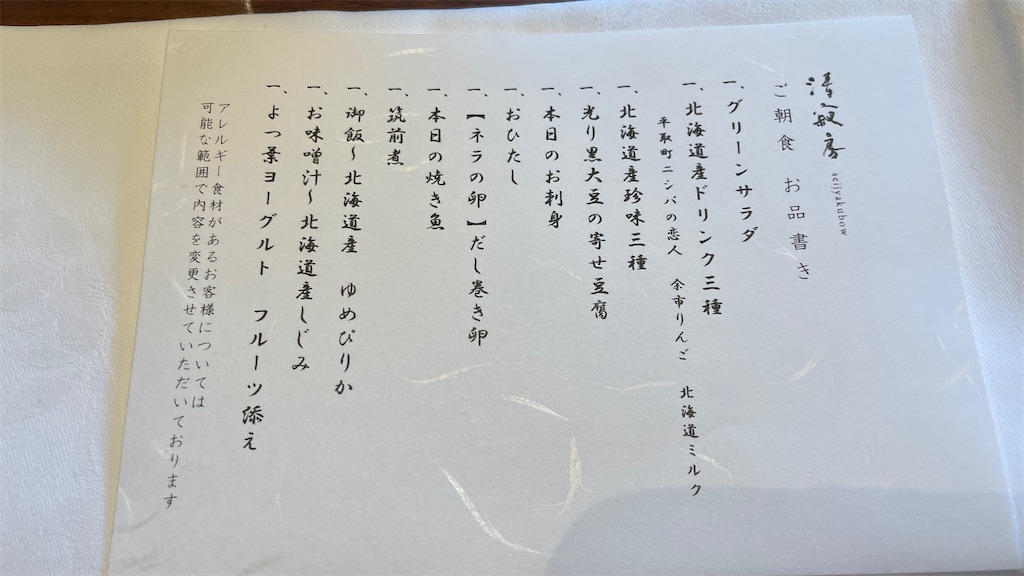 清寂房
seijyakubow
ご朝食 お品書き
一、グリーンサラダ
一、北海道産ドリンク三種
平取町ニシパの恋人 余市りんご 北海道ミルク
一、北海道産珍味三種
一、光り黒大豆の寄せ豆腐
一、本日のお刺身
一、おひたし
一、【ネラの卵】だし巻き卵
一、本日の焼き魚
一、筑前煮
一、御飯〜北海道産 ゆめぴりか
一、お味噌汁〜北海道産しじみ
一、よつ葉ヨーグルト フルーツ添え
アレルギー食材があるお客様については
可能な範囲で内容を変更させていただいております